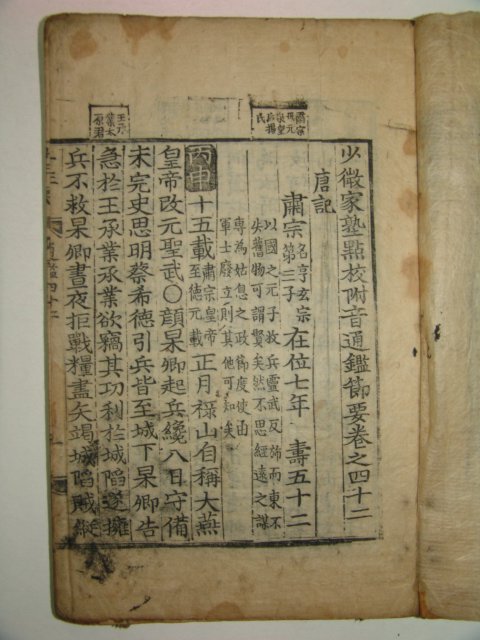 肅宗
氏
少微家塾點校附音通鑑節要卷之四十二
唐記
肅宗 名亨玄宗第三子 在位七年 壽五十二
以國之元子救兵靈武反旆而東不
失舊物可謂賢矣然不思經遠之謀
專為姑息之政節度使由
軍士廢立則其他可知矣
丙申 十五載 肅宗皇帝至德元載 正月祿山自稱大燕
皇帝改元聖武○顔杲卿起兵纔八日守備
未完史思明蔡希德引兵皆至城下杲卿告
急於王承業承業欲竊其功利於城陷遂擁
兵不救杲卿晝夜拒戰糧盡矢竭城陷賊縱
鑑四十二